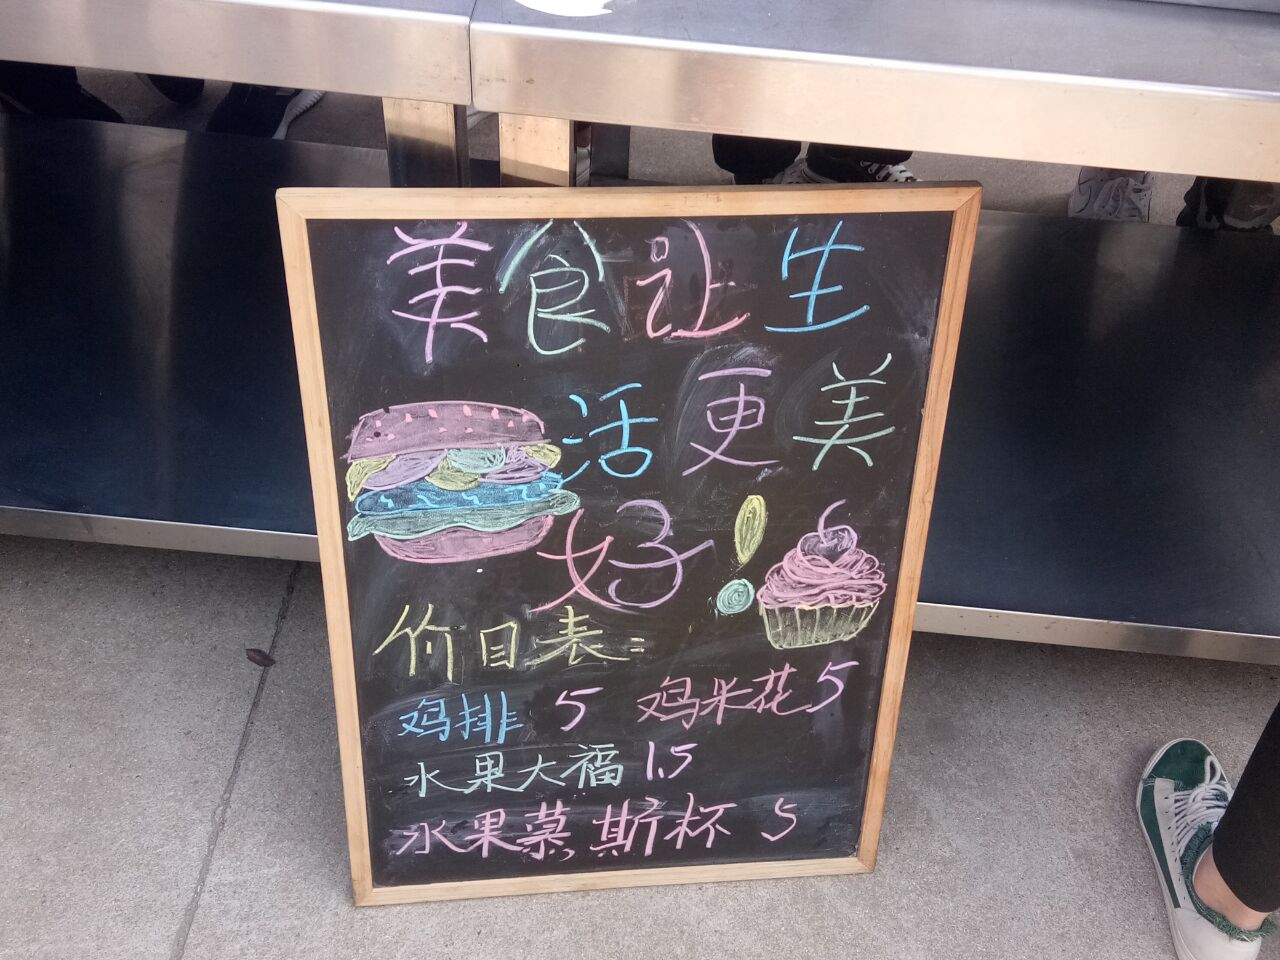 美食让生
活更美
好！
价目表：
鸡排 5 鸡米花 5
水果大福 1.5
水果慕斯杯 5